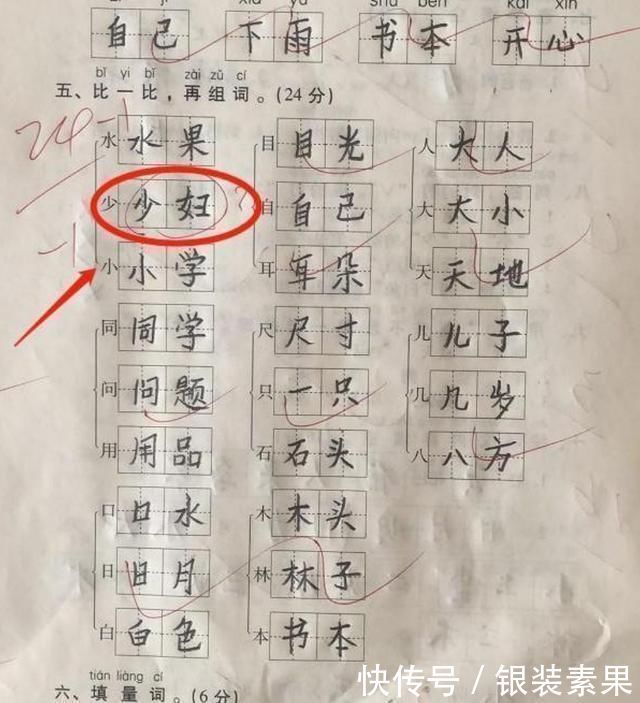 自己 下雨 书本 开心
bǐ yi bǐ zài zǔ cí
五、比一比，再组词。(24分)
24-1
水 水果 目 目光 人 大人
少 少妇 自 自己 大 大小
-1
小 小学 耳 耳朵 天 天地
同 同学 尺 尺寸 儿 儿子
问 问题 只 一只 几 几岁
用 用品 石 石头 八 八方
口 口水 木 木头
日 日月 林 林子
白 白色 本 书本
tián liàng cí
六、填量词。(6分)
快传号 / 银装素果